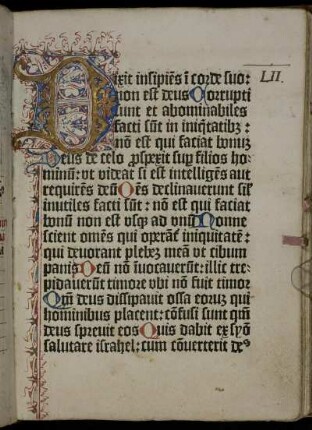 Dixit insipiẽs ĩ corde suo:
LII.
non est deus Corrupti
sunt et abominabiles
facti sũt in iniq̃tatibz:
nõ est qui faciat bonuz
Deus de celo ꝓspexit suꝑ filios ho-
minũ: vt videat si est intelligẽs aut
requirẽs deũ Oẽs declinaverunt sil̃
inutiles facti sũt: nõ est qui faciat
bonũ non est vsqꝫ ad vnũ Nonne
scient omẽs qui operãt̃ iniquitatẽ:
qui devorant plebez meã vt cibum
panis Deũ nõ ĩuocaverũt: illic tre-
pidaverunt timore vbi nõ fuit timor
Qm̃ deus dissipauit ossa eoruz qui
hominibus placent: cõfusi sunt qm̃
deus spreuit eos Quis dabit ex syõ
salutare israhel: cum cõverterit de⁹